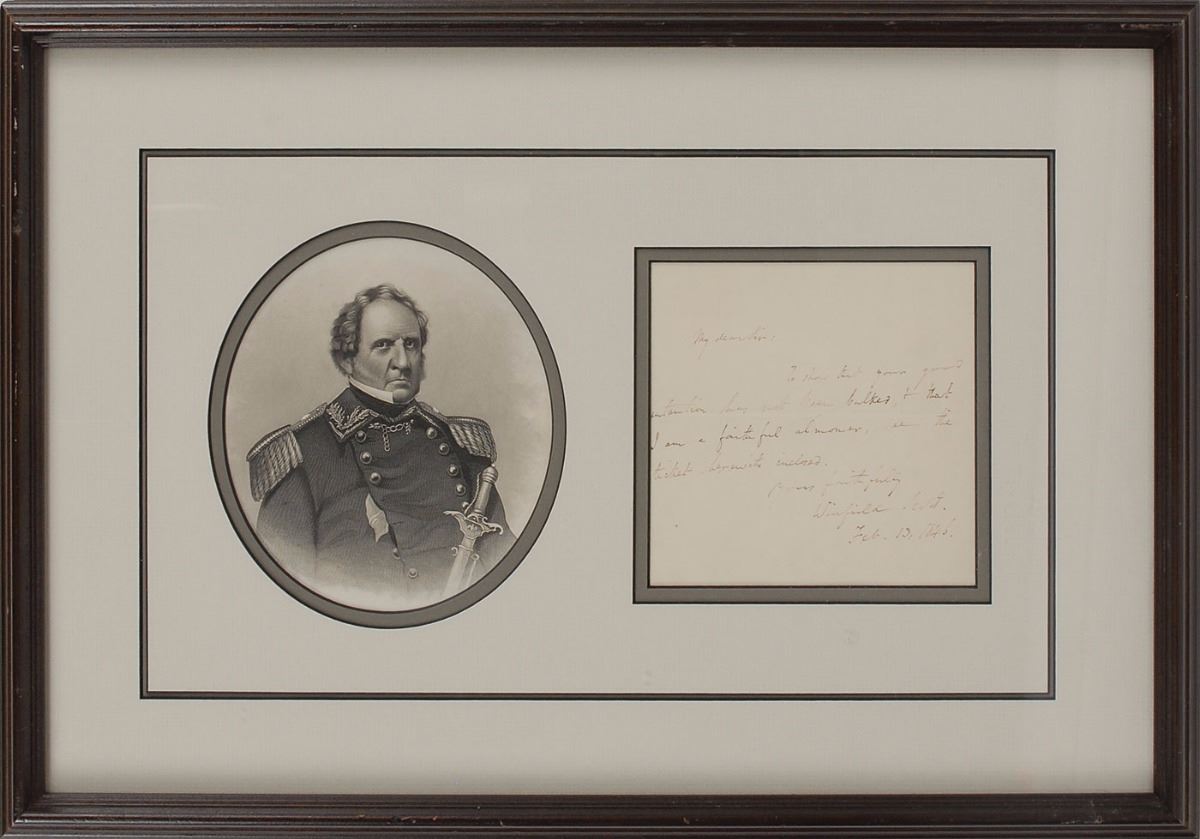 My dear Sir,
To show that your good
intention has not been balked, & that
I am a faithful almoner, see the
ticket herewith inclosed.
Yours faithfully
Winfield Scott.
Feb. 13, 1846.